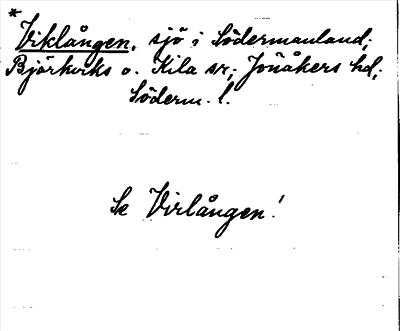 *
Viklången, sjö i Södermanland;
Björkviks o. Kila sr; Jönåkers hd,
Söderm. l.
Se Virlången!